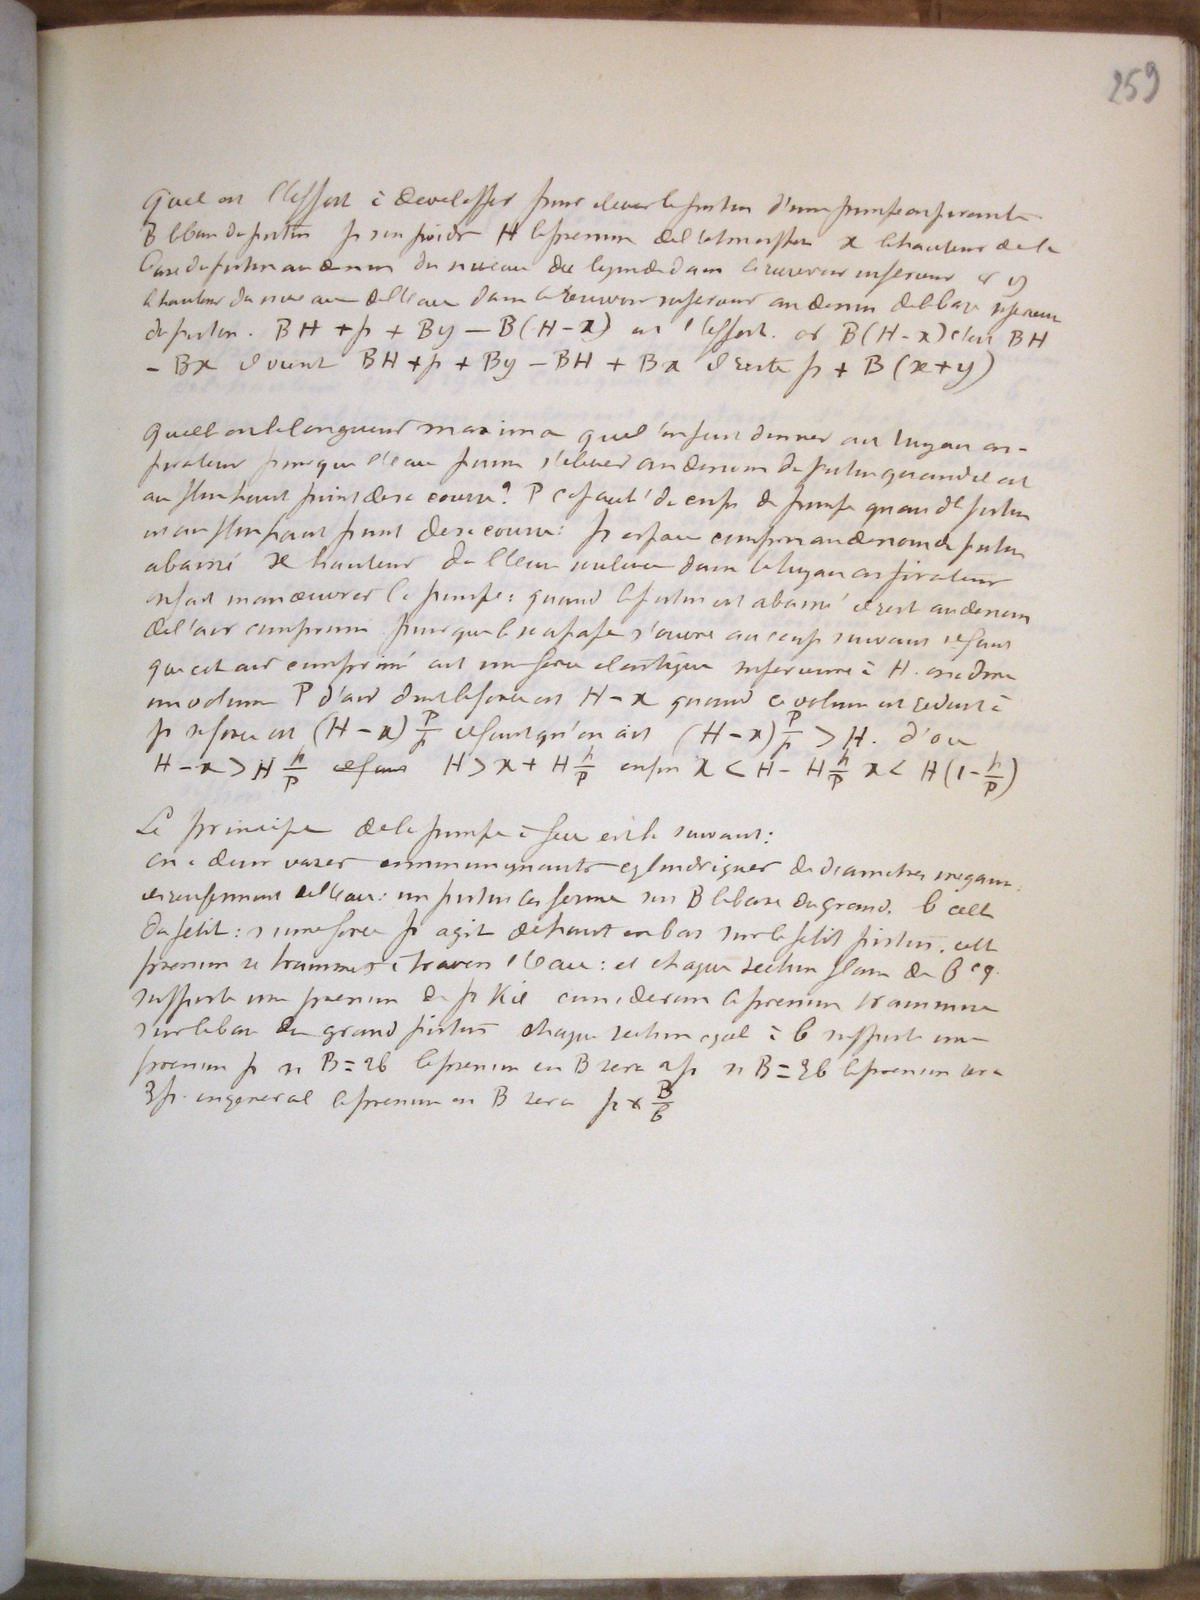 259
Quel est l'effort à developper pour elever le piston d'une pompe aspirante
B la base du piston p son poids H la pression de l'atmosphere x la hauteur de la
base du piston au dessus du niveau du liquide dans le reservoir inferieur et y
la hauteur du niveau de l'eau dans le reservoir superieur au dessus de la base superieure
du piston. BH + p + By - B(H-x) est l'effort. or B(H-x) c'est BH
- Bx il vient BH + p + By - BH + Bx il reste p + B(x+y)
Quelle est la longueur maxima que l'on peut donner au tuyau as-
pirateur pour que l'eau puisse s'elever au dessus du piston quand il est
au plus haut point de sa course? P capacité du corps de pompe quand le piston
est au plus haut point de sa course: p espace compris au dessous du piston
abaissé x hauteur de l'eau soulevée dans le tuyau aspirateur
on fait manœuvrer la pompe: quand le piston est abaissé il reste au dessous
de l'air comprimé pour que la soupape s'ouvre au coup suivant il faut
que cet air comprimé ait une force elastique superieure à H. on a donc
un volume P d'air dont la force est H-x quand ce volume est reduit à
p sa force est (H-x) P/p il faut qu'on ait (H-x) P/p > H. d'ou
H-x > H p/P il faut H > x + H p/P enfin x < H - H p/P x < H(1 - p/P)
Le principe de la pompe à feu est le suivant:
on a deux vases communiquants cylindriques de diametres inegaux.
ils renferment de l'eau: un piston les ferme soit B la base du grand. b celle
du petit: si une force p agit de haut en bas sur le petit piston. cette
pression se transmet à travers l'eau: et chaque section plane de B eq.
supporte une pression de p Kil considerons la pression transmise
sur la base du grand piston chaque section egal à b supporte une
pression p si B = 2b la pression en B sera 2p si B = 3b la pression sera
3p. en general la pression en B sera p × B/b